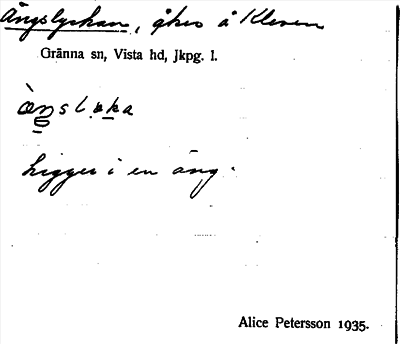 Ängslyckan, åker å Kleven
Gränna sn, Vista hd, Jkpg. l.
Ligger i en äng.
Alice Petersson 1935.